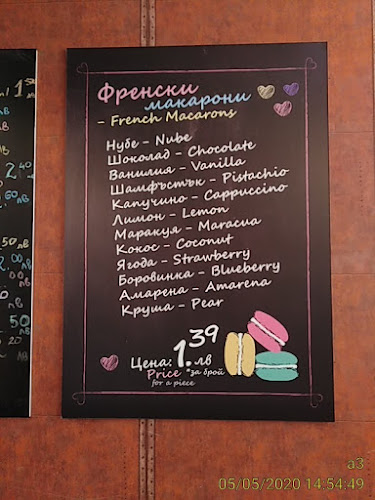 1.50
Френски
макарони
- French Macarons
Нубе - Nube
Шоколад - Chocolate
Ванилия - Vanilla
Шамфъстък - Pistachio
Капучино - Cappuccino
Лимон - Lemon
Маракуя - Maracua
Кокос - Coconut
Ягода - Strawberry
Боровинка - Blueberry
Амарена - Amarena
Круша - Pear
Цена: 1.39 лв
Price *за брой
for a piece
a3
05/05/2020 14:54:49